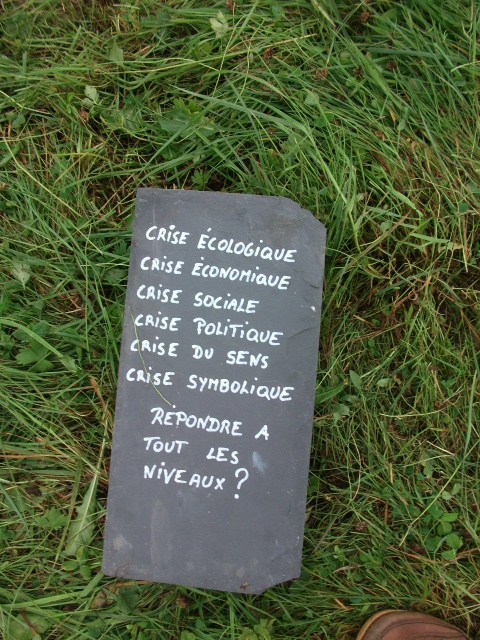 CRISE ÉCOLOGIQUE
CRISE ÉCONOMIQUE
CRISE SOCIALE
CRISE POLITIQUE
CRISE DU SENS
CRISE SYMBOLIQUE
REPONDRE A
TOUT LES
NIVEAUX ?